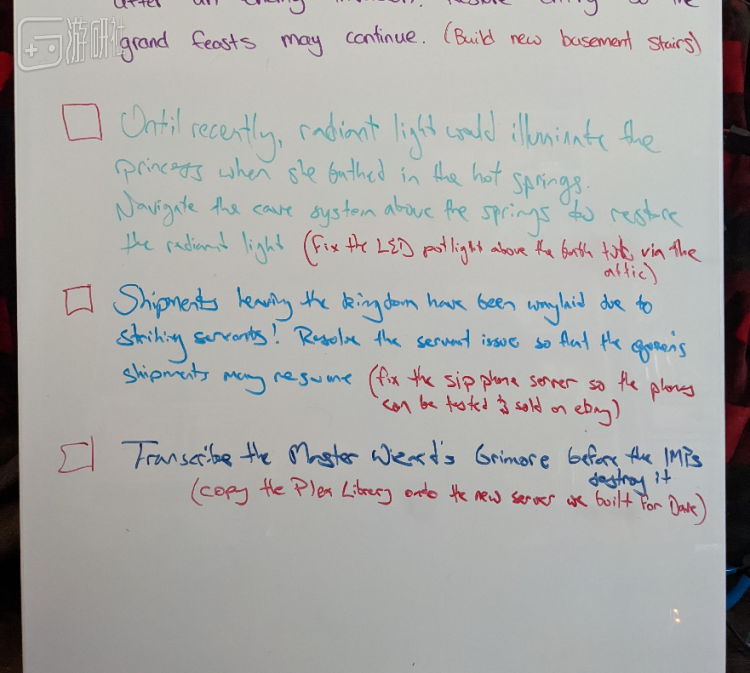 after an enemy
grand feasts may continue. (Build new basement stairs)
游研社
Until recently, radiant light would illuminate the
princess when she bathed in the hot springs.
Navigate the cave system above the springs to restore
the radiant light (Fix the LED potlight above the bath tub via the
attic)
Shipments leaving the kingdom have been waylaid due to
striking servants! Resolve the servant issue so that the queen's
shipments may resume (fix the sip phone server so the phones
can be tested & sold on ebay)
Transcribe the Master Wizard's Grimore before the IMPs
destroy it
(copy the Plex Library onto the new server we built for Dave)